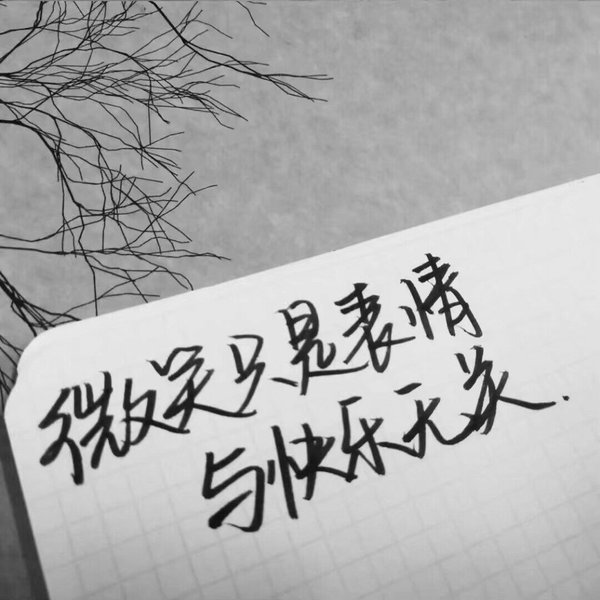 微笑只是表情
与快乐无关.